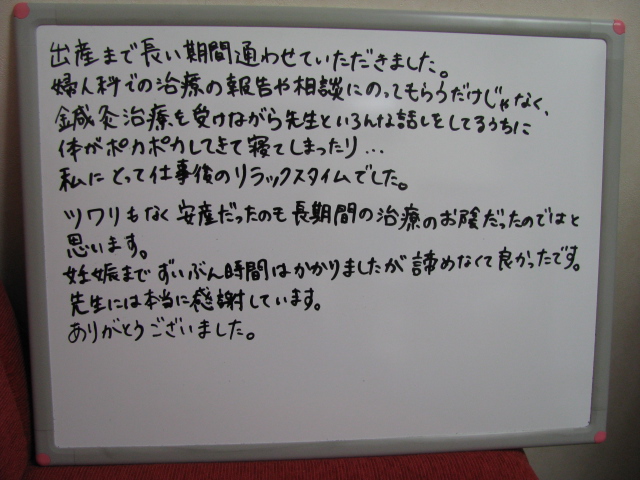 出産まで長い期間通わせていただきました。
婦人科での治療の報告や相談にのってもらうだけじゃなく、
鍼灸治療を受けながら先生といろんな話しをしてるうちに
体がポカポカしてきて寝てしまったり…
私にとって仕事後のリラックスタイムでした。
ツワリもなく安産だったのも長期間の治療のお陰だったのではと
思います。
妊娠までずいぶん時間はかかりましたが諦めなくて良かったです。
先生には本当に感謝しています。
ありがとうございました。